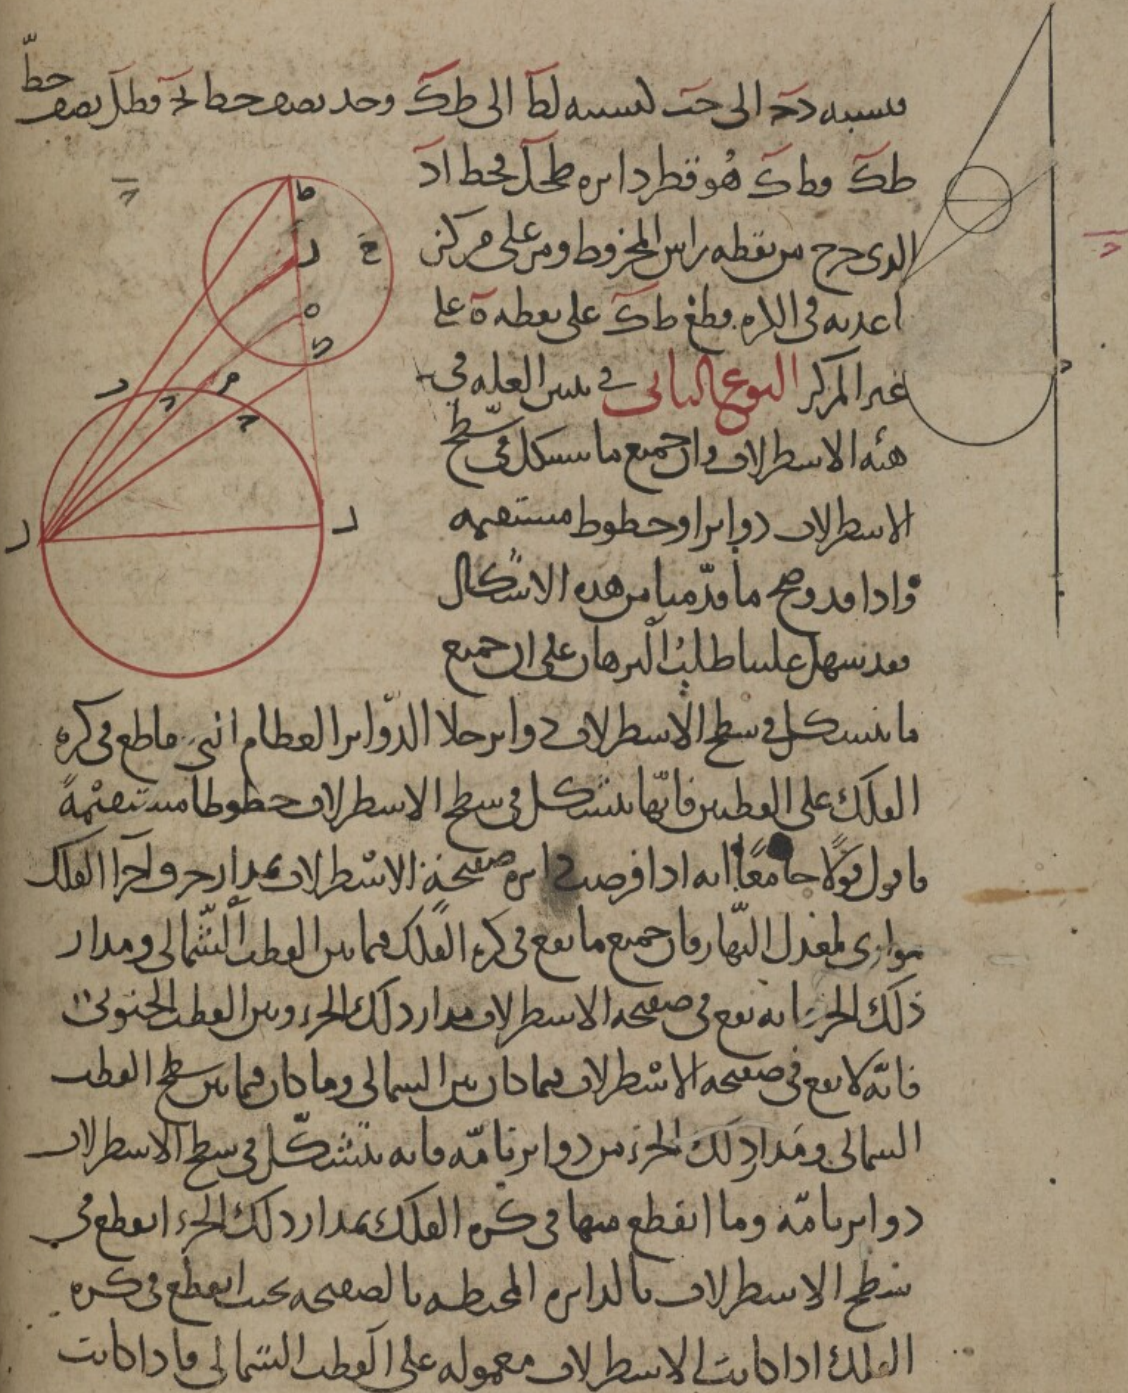 فنسبه دح الى حت كنسبه لط الى طك وحد نصف خط اح وطل نصف خط
طك وطك هو قطر دايره طحل فخط اد
الذى خرج من نقطه راس المخروط ومر على مركز
قطع طك على نقطه ه على
غير المركز النوع الثانى فى تبيين العله فى
هيئه الاسطرلاب وان جميع ما يتشكل فى سطح
الاسطرلاب دواير او خطوط مستقيمه
واذا قد وضح ما قدمنا من هذه الاشكال
فقد سهل علينا طلب البرهان على ان جميع
ما يتشكل فى سطح الاسطرلاب دواير خلا الدواير العظام التى تقاطع فى كره
الفلك على القطبين فانها تتشكل فى سطح الاسطرلاب خطوطا مستقيمة
فاقول قولا جامعا انه اذا فرضت دايره صفيحة الاسطرلاب بمدار جزو من اجزا الفلك
موازى لمعدل النهار فان جميع ما يقع فى كره الفلك فيما بين القطب الشمالى ومدار
ذلك الجزء فانه يقع فى صفيحه الاسطرلاب مدار ذلك الجزء وبين القطب الجنوبى
فانه لا يقع فى صفيحه الاسطرلاب فما كان بين الشمالى وما كان فيما بين سطح القطب
الشمالى ومدار ذلك الجزء من دواير تامه فانه يتشكل فى سطح الاسطرلاب
دواير تامه وما انقطع منها فى كره الفلك بمدار ذلك الجزء انقطع فى
سطح الاسطرلاب بالدايره المحيطه بالصفيحه بحيث انقطع فى كره
الفلك اذا كانت الاسطرلاب معموله على القطب الشمالى فاذا كانت
ط
ح
ه
ك
م
د